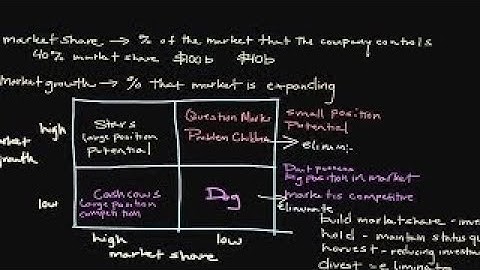 market share → % of the market that the company controls
40% market share $100b $40b
Market growth → % that market is expanding
high
Stars
Large position
potential
Question Marks
Problem Children
small position
Potential
elimin.
market
growth
low
Cash cows
Large position
competition
Dog
position in market
market is competitive
Eliminate
high
low
market share
build market share - inve
hold - maintain status qu
harvest - reducing investm
divest - eliminate